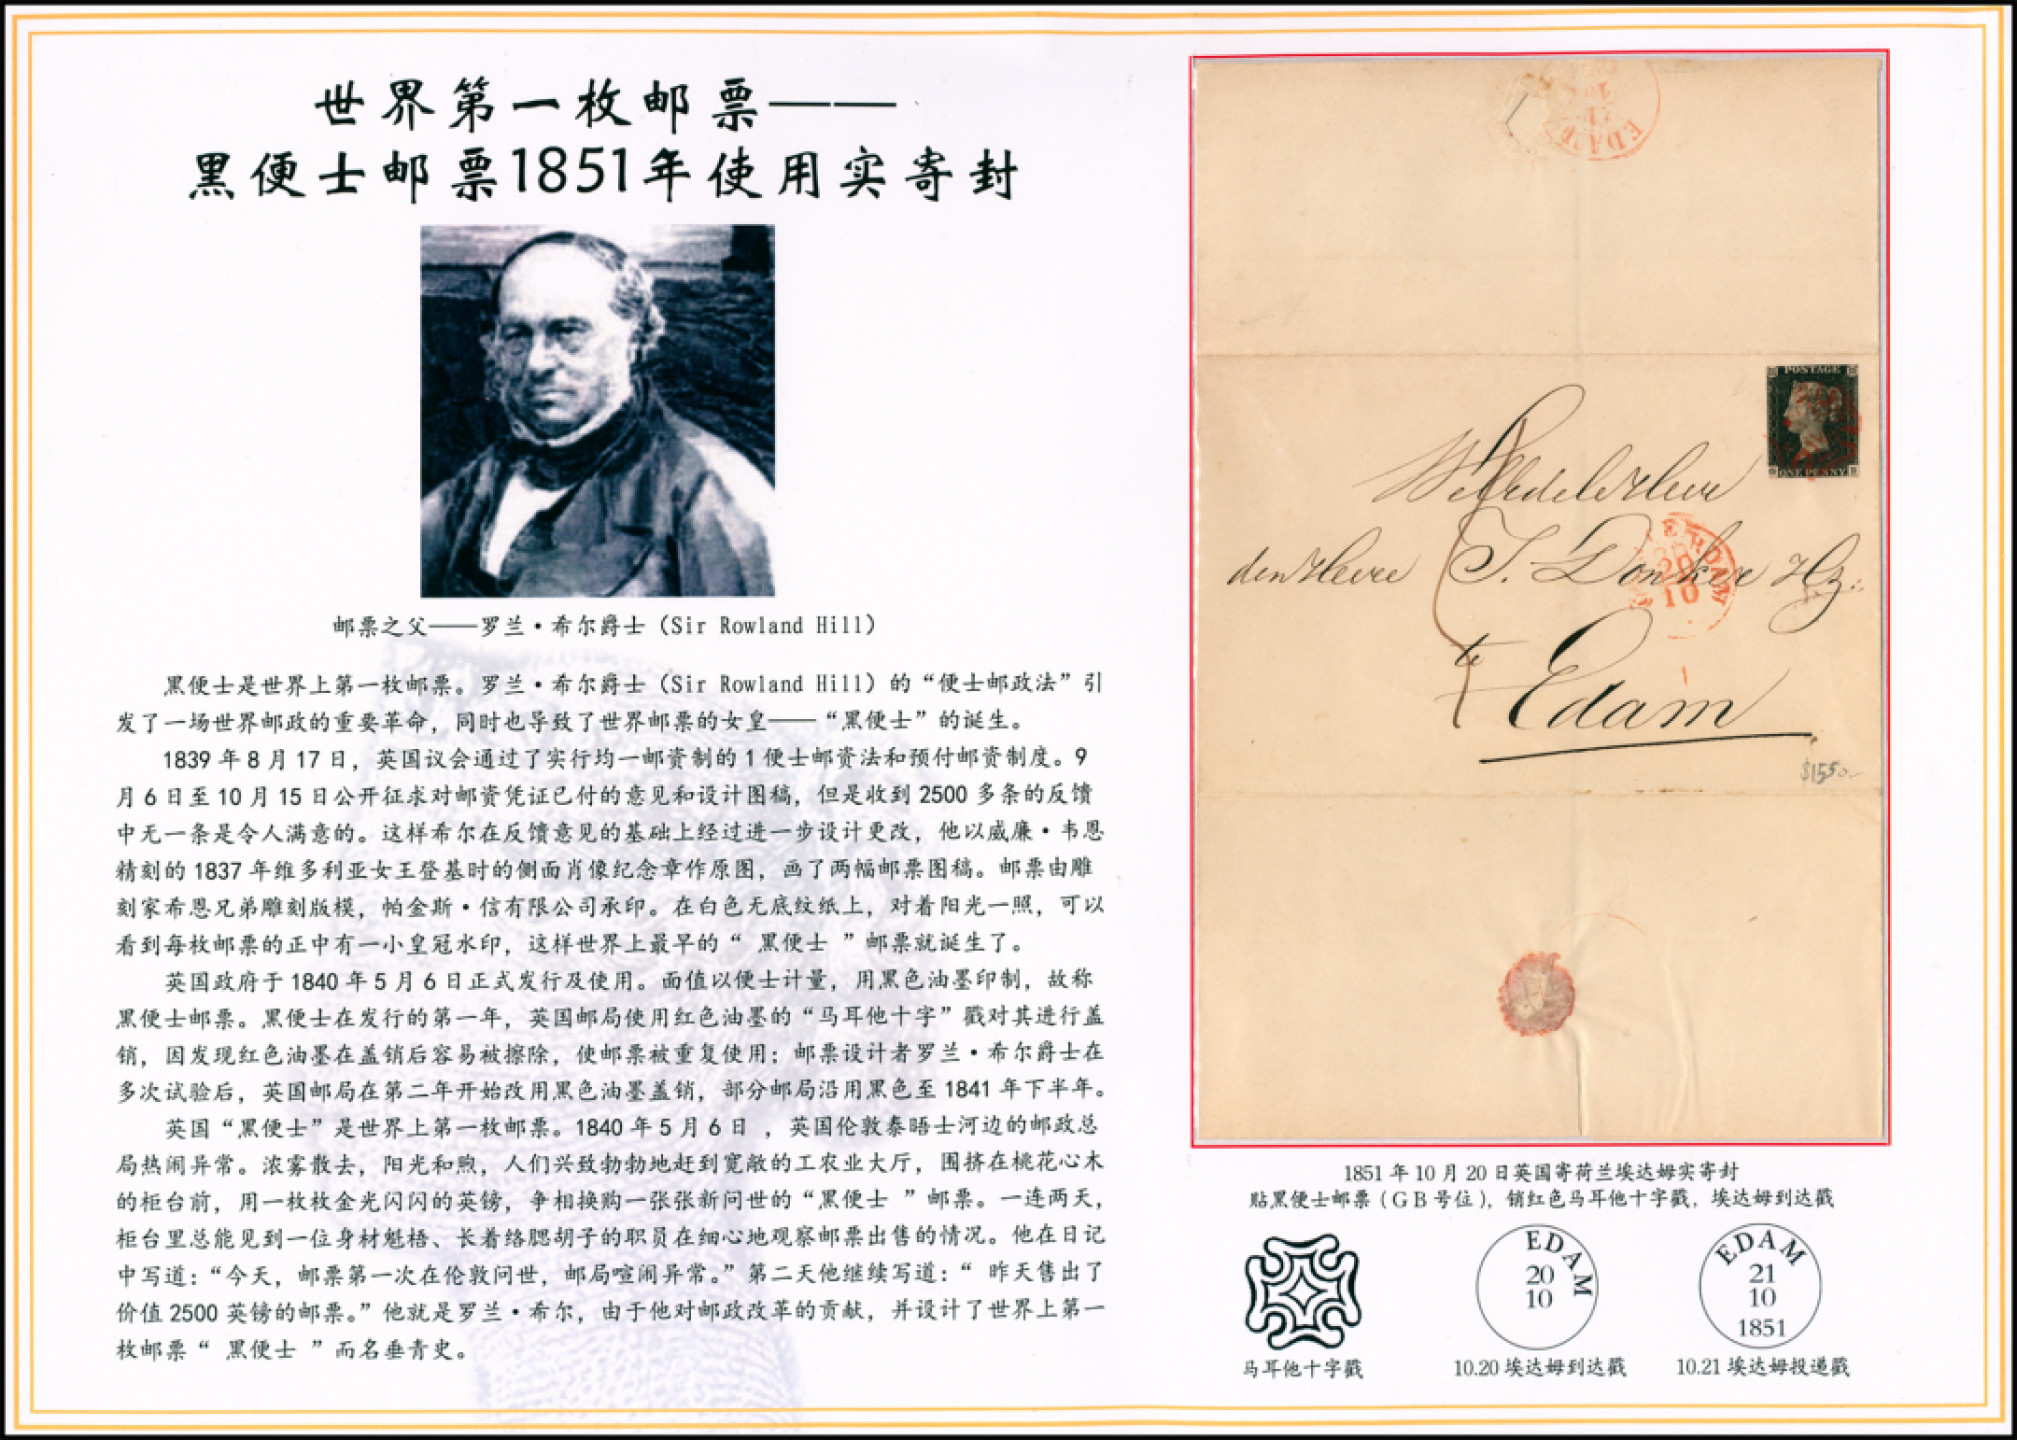 世界第一枚邮票——
黑便士邮票1851年使用实寄封
邮票之父——罗兰·希尔爵士（Sir Rowland Hill）
黑便士是世界上第一枚邮票。罗兰·希尔爵士（Sir Rowland Hill）的“便士邮政法”引
发了一场世界邮政的重要革命，同时也导致了世界邮票的女皇——“黑便士”的诞生。
1839年8月17日，英国议会通过了实行均一邮资制的1便士邮资法和预付邮资制度。9
月6日至10月15日公开征求对邮资凭证已付的意见和设计图稿，但是收到2500多条的反馈
中无一条是令人满意的。这样希尔在反馈意见的基础上经过进一步设计更改，他以威廉·韦恩
精刻的1837年维多利亚女王登基时的侧面肖像纪念章作原图，画了两幅邮票图稿。邮票由雕
刻家希恩兄弟雕刻版模，帕金斯·信有限公司承印。在白色无底纹纸上，对着阳光一照，可以
看到每枚邮票的正中有一小皇冠水印，这样世界上最早的“ 黑便士 ”邮票就诞生了。
英国政府于1840年5月6日正式发行及使用。面值以便士计量，用黑色油墨印制，故称
黑便士邮票。黑便士在发行的第一年，英国邮局使用红色油墨的“马耳他十字”戳对其进行盖
销，因发现红色油墨在盖销后容易被擦除，使邮票被重复使用；邮票设计者罗兰·希尔爵士在
多次试验后，英国邮局在第二年开始改用黑色油墨盖销，部分邮局沿用黑色至1841年下半年。
英国“黑便士”是世界上第一枚邮票。1840年5月6日 ，英国伦敦泰晤士河边的邮政总
局热闹异常。浓雾散去，阳光和煦，人们兴致勃勃地赶到宽敞的工农业大厅，围挤在桃花心木
的柜台前，用一枚枚金光闪闪的英镑，争相换购一张张新问世的“黑便士 ”邮票。一连两天，
柜台里总能见到一位身材魁梧、长着络腮胡子的职员在细心地观察邮票出售的情况。他在日记
中写道：“今天，邮票第一次在伦敦问世，邮局喧闹异常。”第二天他继续写道：“ 昨天售出了
价值2500英镑的邮票。”他就是罗兰·希尔，由于他对邮政改革的贡献，并设计了世界上第一
枚邮票“ 黑便士 ”而名垂青史。
EDAM
POSTAGE
ONE PENNY
den Heere J. Donker Hz:
20
10
te
Edam
$1550-
1851年10月20日英国寄荷兰埃达姆实寄封
贴黑便士邮票（GB号位），销红色马耳他十字戳，埃达姆到达戳
EDAM
20
10
EDAM
21
10
1851
马耳他十字戳
10.20埃达姆到达戳
10.21埃达姆投递戳